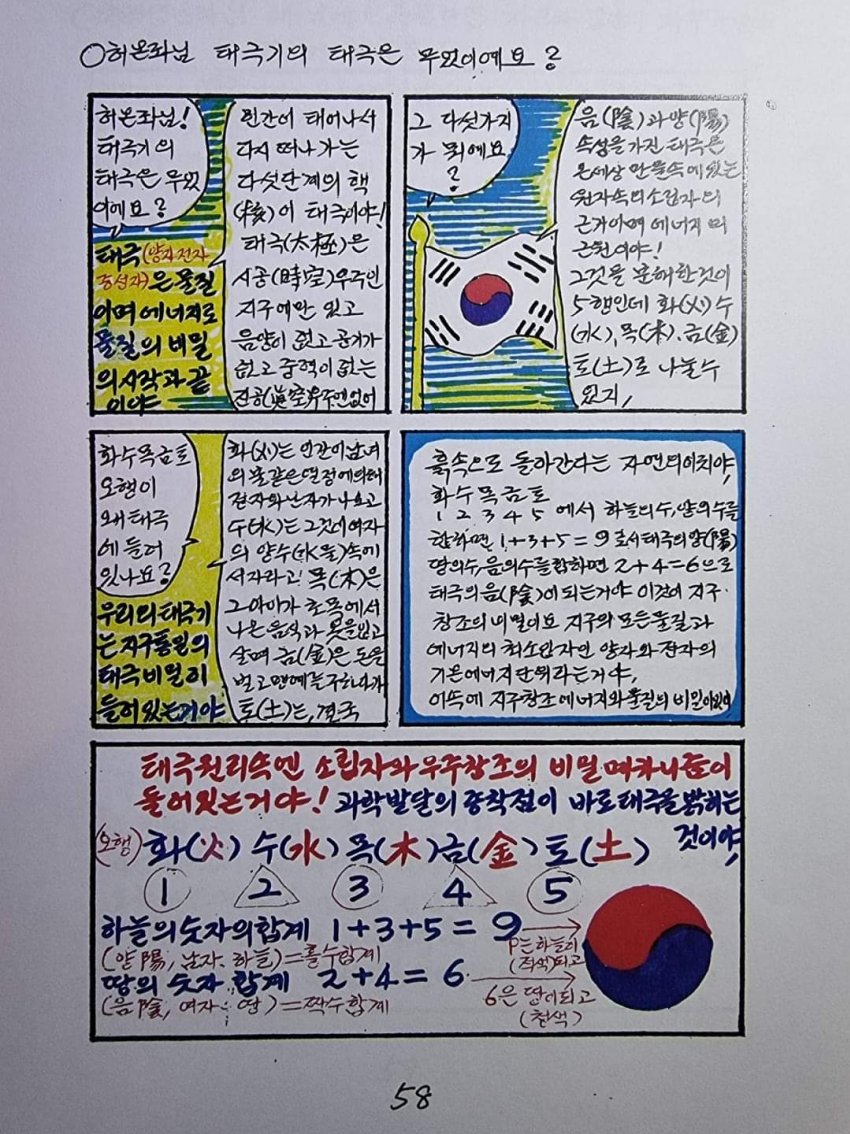 ○허온좌님 태극기의 태극은 무엇이에요?
허온좌님!
태극기의
태극은 무엇
이에요?
태극(양자전자
중성자)은 물질
이며 에너지로
물질의 비밀
의 시작과 끝
이야
인간이 태어나서
다시 떠나가는
다섯단계의 핵
(核)이 태극이야!
태극(太極)은
시공(時空)우주인
지구에만 있고
음양이 없고 공기가
없고 중력이 없는
진공(眞空)우주엔 없어
그 다섯가지
가 뭐에요
?
음(陰)과 양(陽)
속성을 가진 태극은
온세상 만물속에 있는
원자속의 소립자의
근거이며 에너지의
근원이야!
그것을 분해한것이
5행인데 화(火) 수
(水), 목(木), 금(金)
토(土)로 나눌수
있지,
화수목금토
오행이
왜 태극
에 들어
있나요?
우리의 태극기
는 지구통일의
태극비밀이
들어있는거야
화(火)는 인간이 남녀
의 불같은 열정에 의해
전자와 난자가 나오고
수(水)는 그것이 여자
의 양수(水물)속에
서 자라고! 목(木)은
그 아이가 초목에서
나온 음식과 옷을 입고
살며 금(金)은 돈을
벌고 명예를 구하다가
토(土)는, 결국
흙속으로 돌아간다는 자연의이치야,
화수목금토
1 2 3 4 5 에서 하늘의수,양의수를
합하면 1+3+5=9로서 태극의 양(陽)
땅의수,음의수를 합하면 2+4=6으로
태극의 음(陰)이 되는거야 이것이 지구
창조의 비밀이요 지구의 모든물질과
에너지의 최소인자인 양자와 전자의
기본에너지 단위라는거야,
이속에 지구창조 에너지와 물질의 비밀이있어
태극원리속엔 소립자와 우주창조의 비밀 메카니즘이
들어있는거야! 과학발달의 종착점이 바로 태극을 밝히는
것이야,
(오행) 화(火) 수(水) 목(木) 금(金) 토(土)
1 2 3 4 5
하늘의 숫자의 합계 1+3+5=9
(양陽, 남자·하늘)=홀수합계
9는 하늘이
(적색)되고
땅의 숫자 합계 2+4=6
(음陰, 여자·땅)=짝수합계
6은 땅이되고
(청색)
58